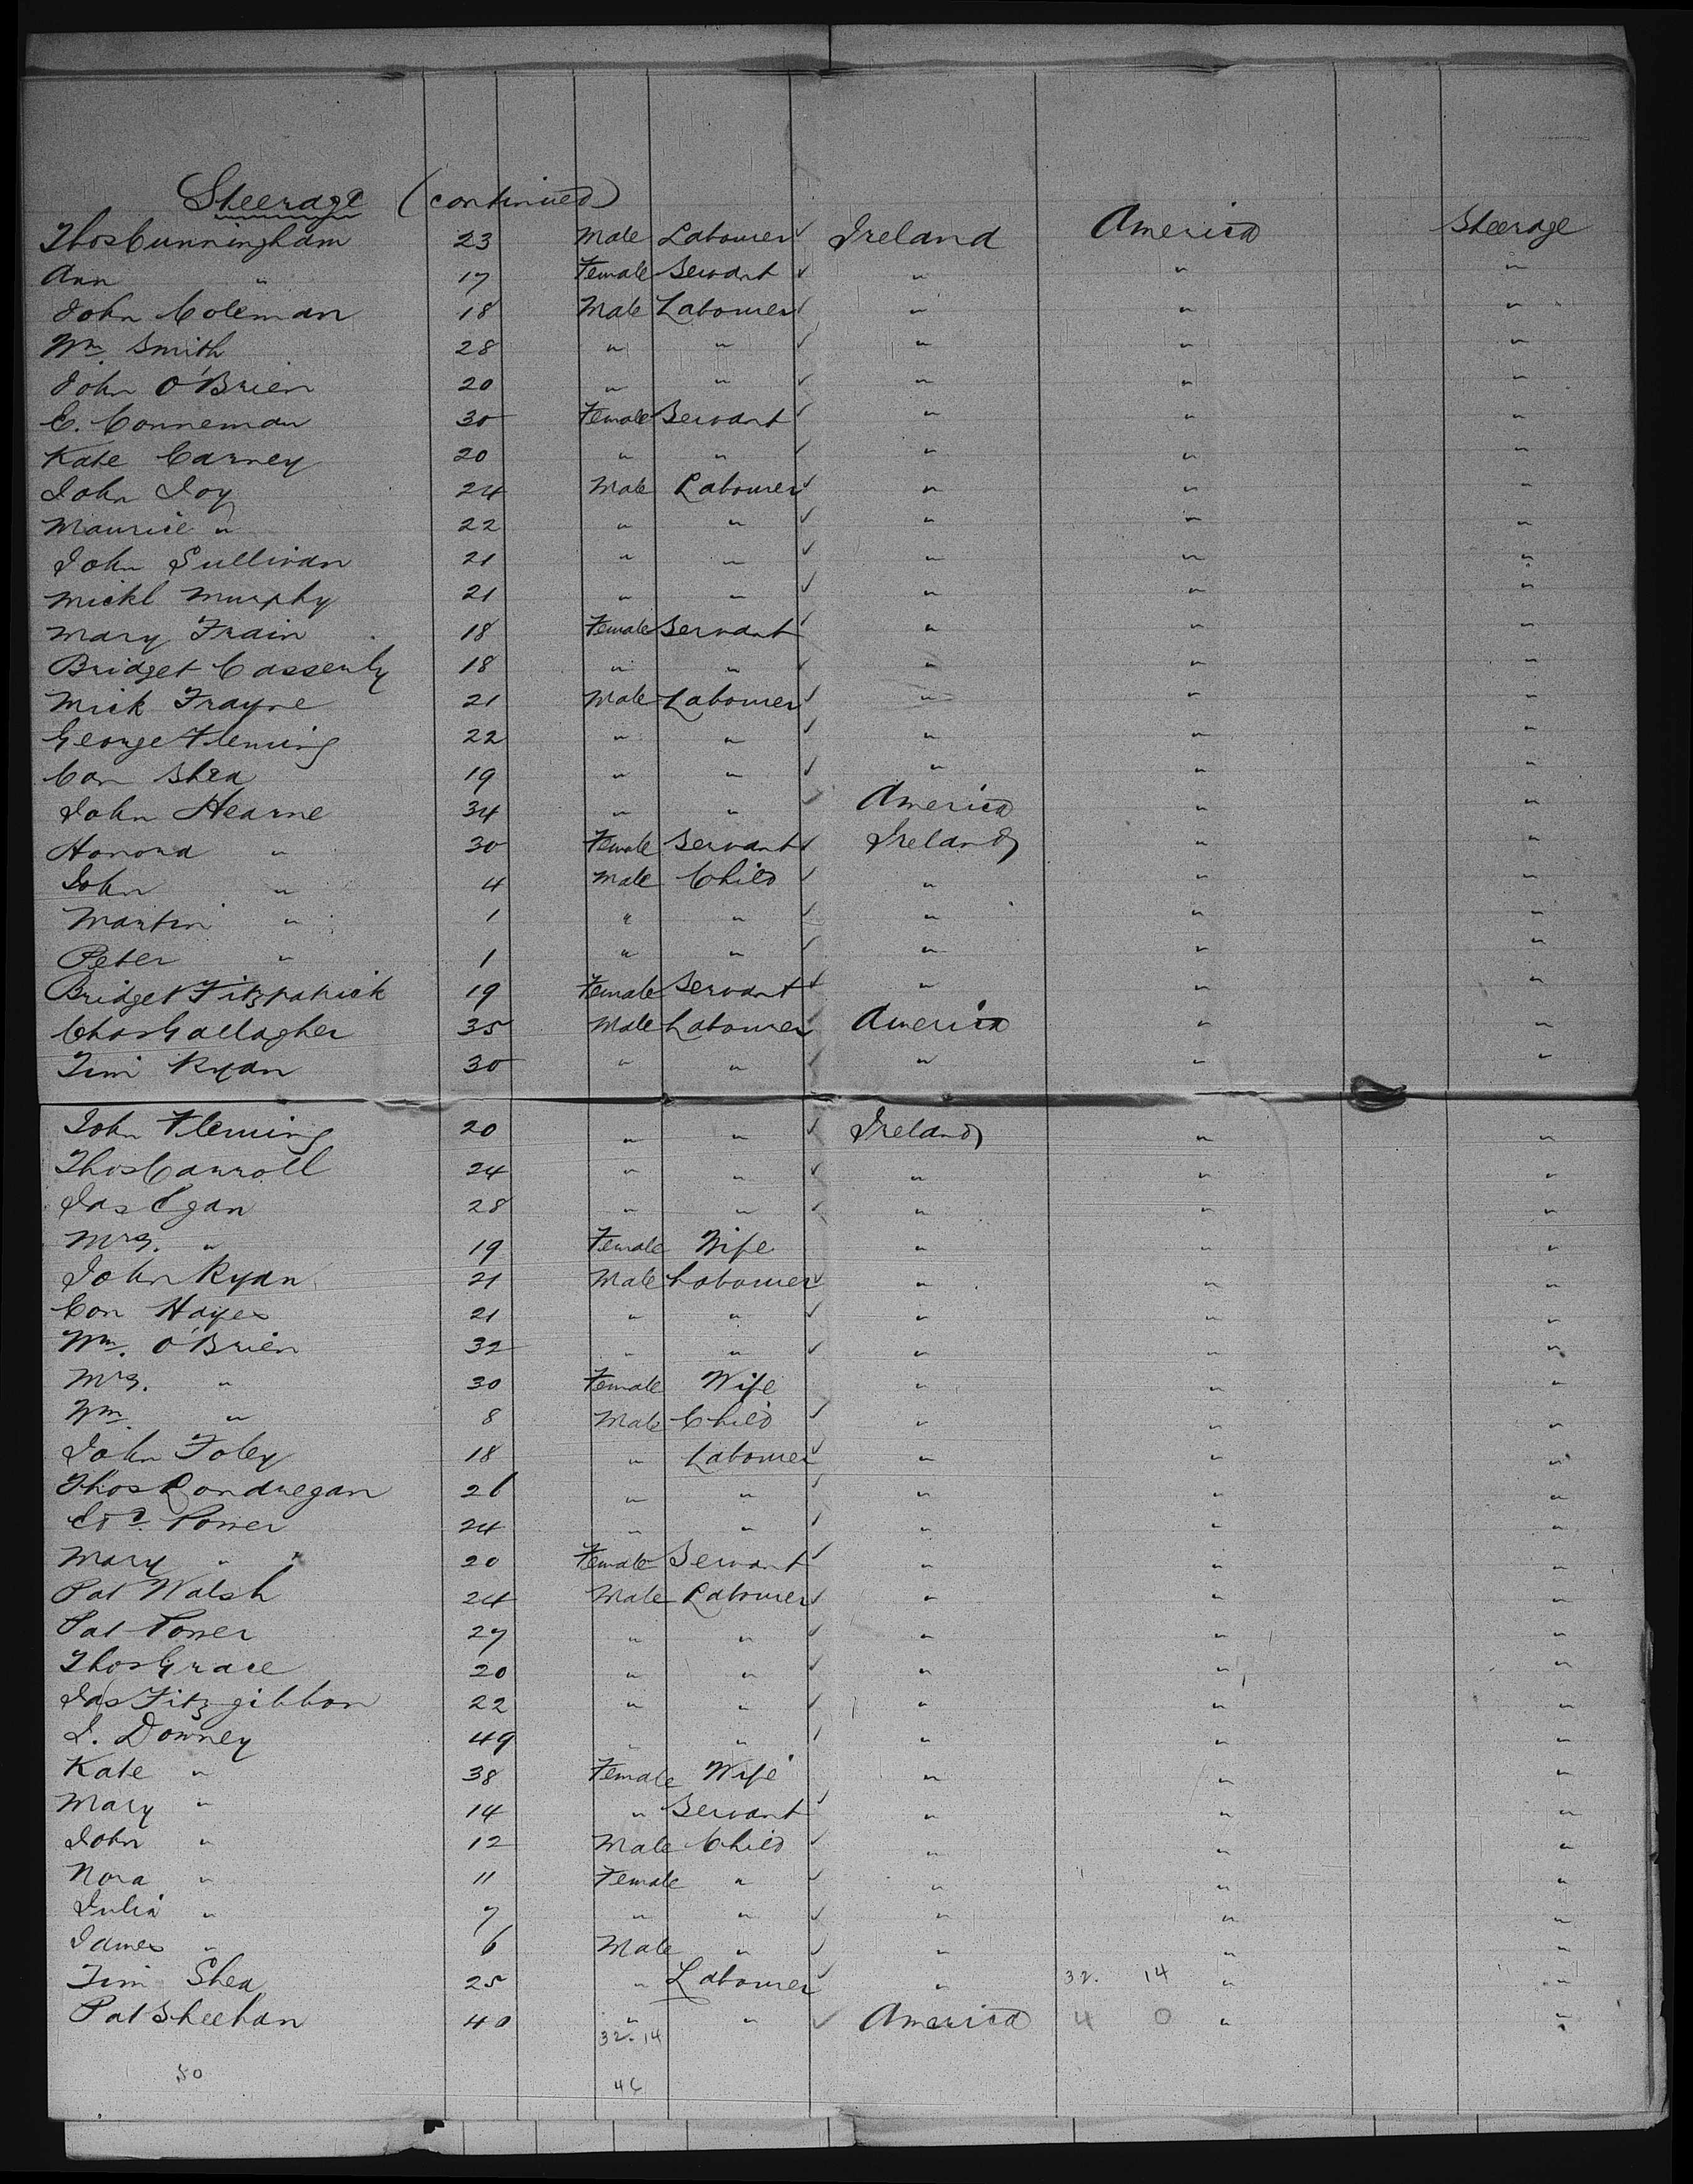 Steerage (continued)
Thos Cunningham 23 Male Labourer ✓ Ireland America Steerage
Ann " 17 Female Servant ✓ " " "
John Coleman 18 Male Labourer ✓ " " "
Wm. Smith 28 " " ✓ " " "
John O'Brien 20 " " ✓ " " "
C. Conneman 30 Female Servant ✓ " " "
Kate Carney 20 " " ✓ " " "
John Joy 24 Male Labourer ✓ " " "
Maurice " 22 " " ✓ " " "
John Sullivan 21 " " ✓ " " "
Mickl Murphy 21 " " ✓ " " "
Mary Frain 18 Female Servant ✓ " " "
Bridget Casserly 18 " " ✓ " " "
Mick Frayne 21 Male Labourer ✓ " " "
George Fleming 22 " " ✓ " " "
Con Shea 19 " " ✓ " " "
John Hearne 34 " " ✓ America " "
Honora " 30 Female Servant ✓ Ireland " "
John " 4 Male Child ✓ " " "
Martin " 1 " " ✓ " " "
Peter " 1 " " ✓ " " "
Bridget Fitzpatrick 19 Female Servant ✓ " " "
Chas Gallagher 35 Male Labourer ✓ America " "
Tim Ryan 30 " " ✓ " " "
John Fleming 20 " " ✓ Ireland " "
Thos Carroll 24 " " ✓ " " "
Jas Egan 28 " " ✓ " " "
Mrs. " 19 Female Wife " " "
John Ryan 21 Male Labourer ✓ " " "
Con Hayes 21 " " ✓ " " "
Wm. O'Brien 32 " " ✓ " " "
Mrs. " 30 Female Wife " " "
Wm. " 8 Male Child ✓ " " "
John Foley 18 " Labourer ✓ " " "
Thos Londregan 26 " " ✓ " " "
Edd. Power 24 " " ✓ " " "
Mary " 20 Female Servant ✓ " " "
Pat Walsh 24 Male Labourer ✓ " " "
Pat Power 27 " " ✓ " " "
Thos Grace 20 " " ✓ " " "
Jas Fitzgibbon 22 " " ✓ " " "
J. Downey 49 " " ✓ " " "
Kate " 38 Female Wife " " "
Mary " 14 " Servant ✓ " " "
John " 12 Male Child ✓ " " "
Nora " 11 Female " ✓ " " "
Julia " 7 " " ✓ " " "
James " 6 Male " ✓ " " "
Tim Shea 25 " Labourer ✓ " 32. 14 " "
Pat Sheehan 40 " " ✓ America 4 0 " "
32. 14
50
46